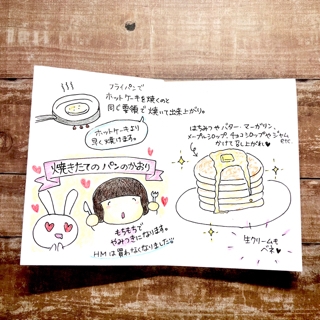 フライパンで
ホットケーキを焼くのと
同じ要領で焼いて出来上がり。
ホットケーキより
早く焼けます。
焼きたてのパンのかおり
もちもちで
やみつきになります。
HMは買わなくなりました
はちみつやバター・マーガリン、
メープルシロップ、チョコシロップやジャム
かけて召し上がれ♥
etc.
生クリームも
ベネ♥